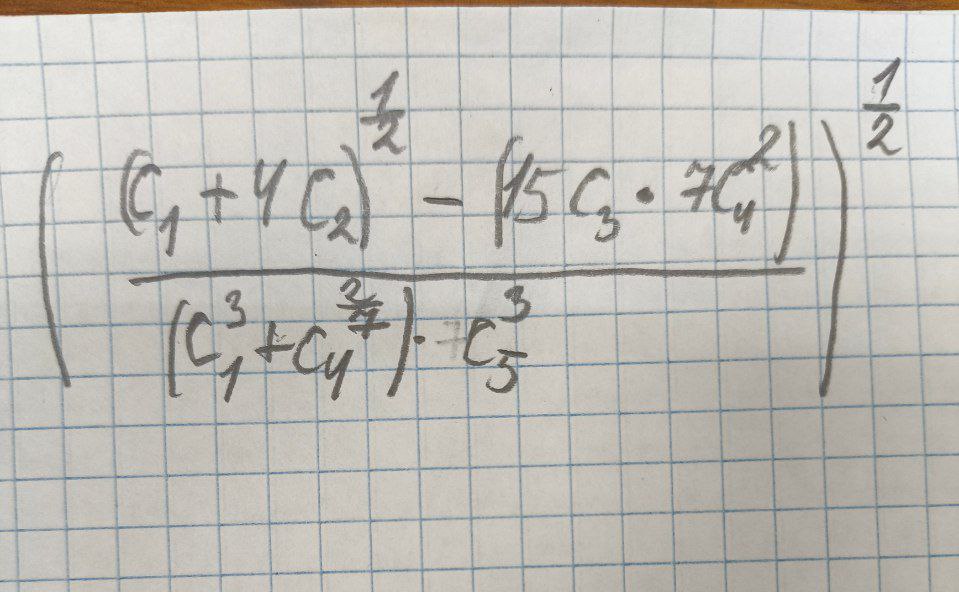 \left( \frac{(C_1 + 4C_2)^{\frac{1}{2}} - (15C_3 \cdot 7C_4^2)}{(C_1^3 + C_4^{\frac{2}{7}}) \cdot C_5^3} \right)^{\frac{1}{2}}